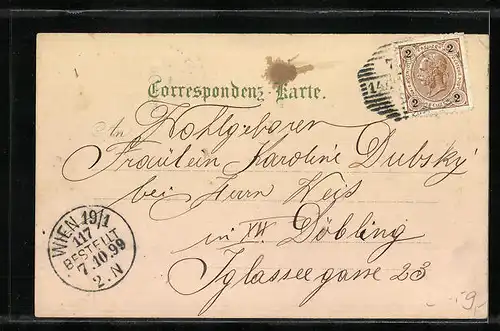 Correspondenz-Karte.
An Wohlgeboren
Fräulein Karoline Dubsky
bei Herrn Weis
in Döbling
Iglaseegasse 23
2 2
2 2
WIEN 19/1
117
BESTELLT
7.10.99
2.N
9.-